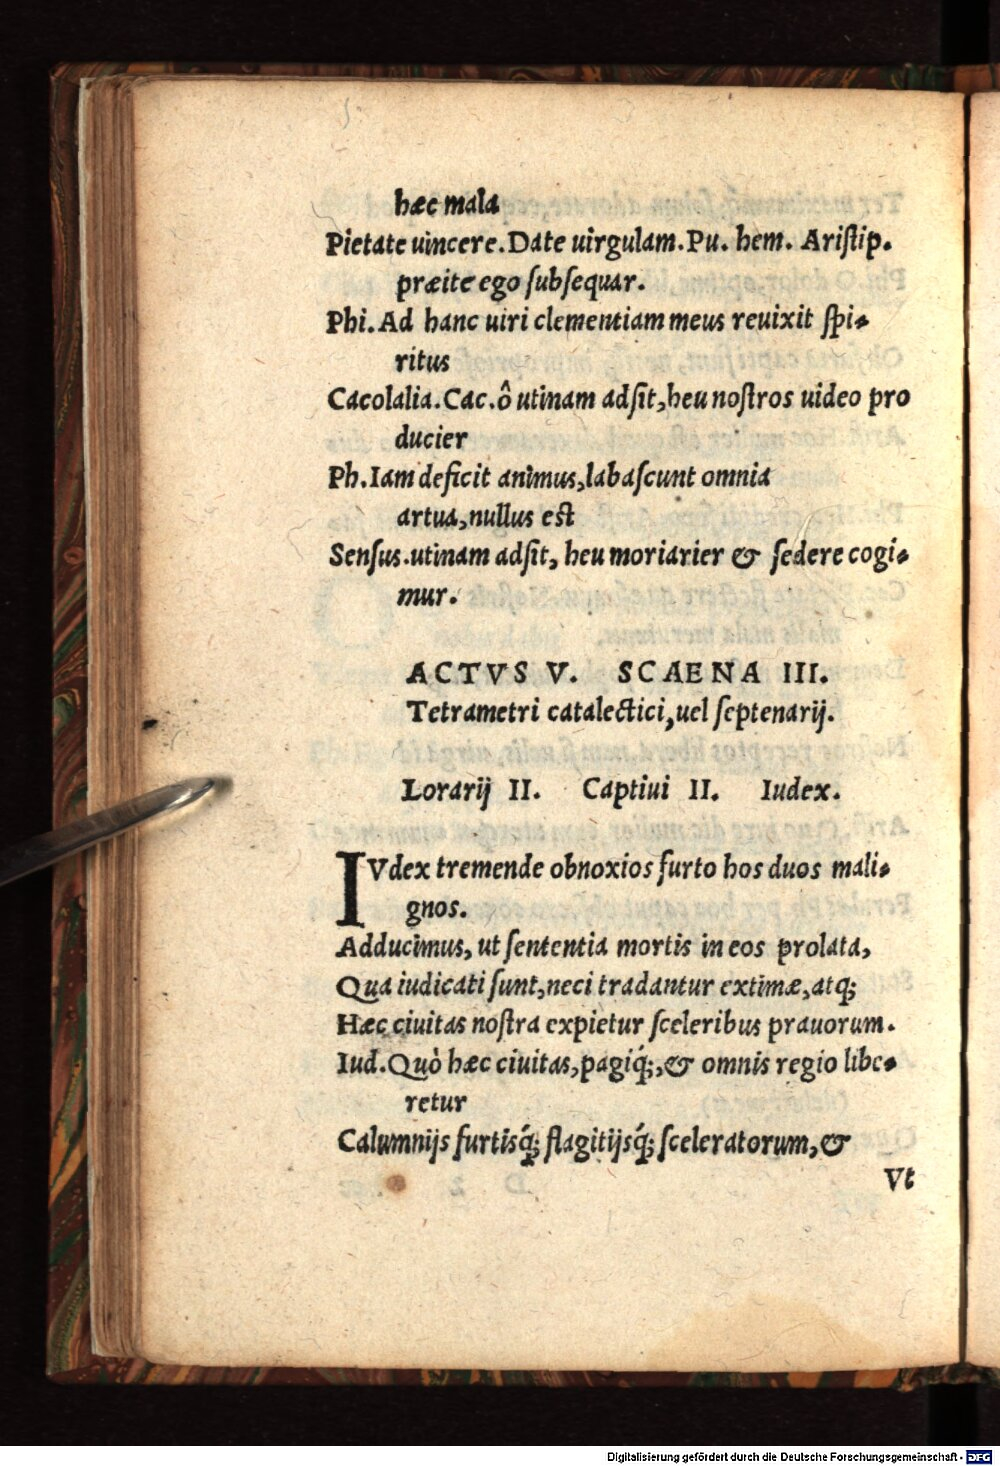 hæc mala
Pietate uincere. Date uirgulam. Pu. hem. Ariſtip.
præite ego ſubſequar.
Phi. Ad hanc uiri clementiam meus reuixit ſpi-
ritus
Cacolalia. Cac. ô utinam adſit, heu noſtros uideo pro
ducier
Ph. Iam deficit animus, labaſcunt omnia
artua, nullus est
Senſus. utinam adſit, heu moriarier & ſedere cogi-
mur.
ACTVS V. SCAENA III.
Tetrametri catalectici, uel ſeptenarij.
Lorarij II. Captiui II. Iudex.
IVdex tremende obnoxios furto hos duos mali-
gnos.
Adducimus, ut ſententia mortis in eos prolata,
Qua iudicati ſunt, neci tradantur extimæ, atq;
Hæc ciuitas noſtra expietur ſceleribus prauorum.
Iud. Quò hæc ciuitas, pagiq́;, & omnis regio libe-
retur
Calumnijs furtisq́; flagitijsq́; ſceleratorum, &
Vt
Digitalisierung gefördert durch die Deutsche Forschungsgemeinschaft - DFG